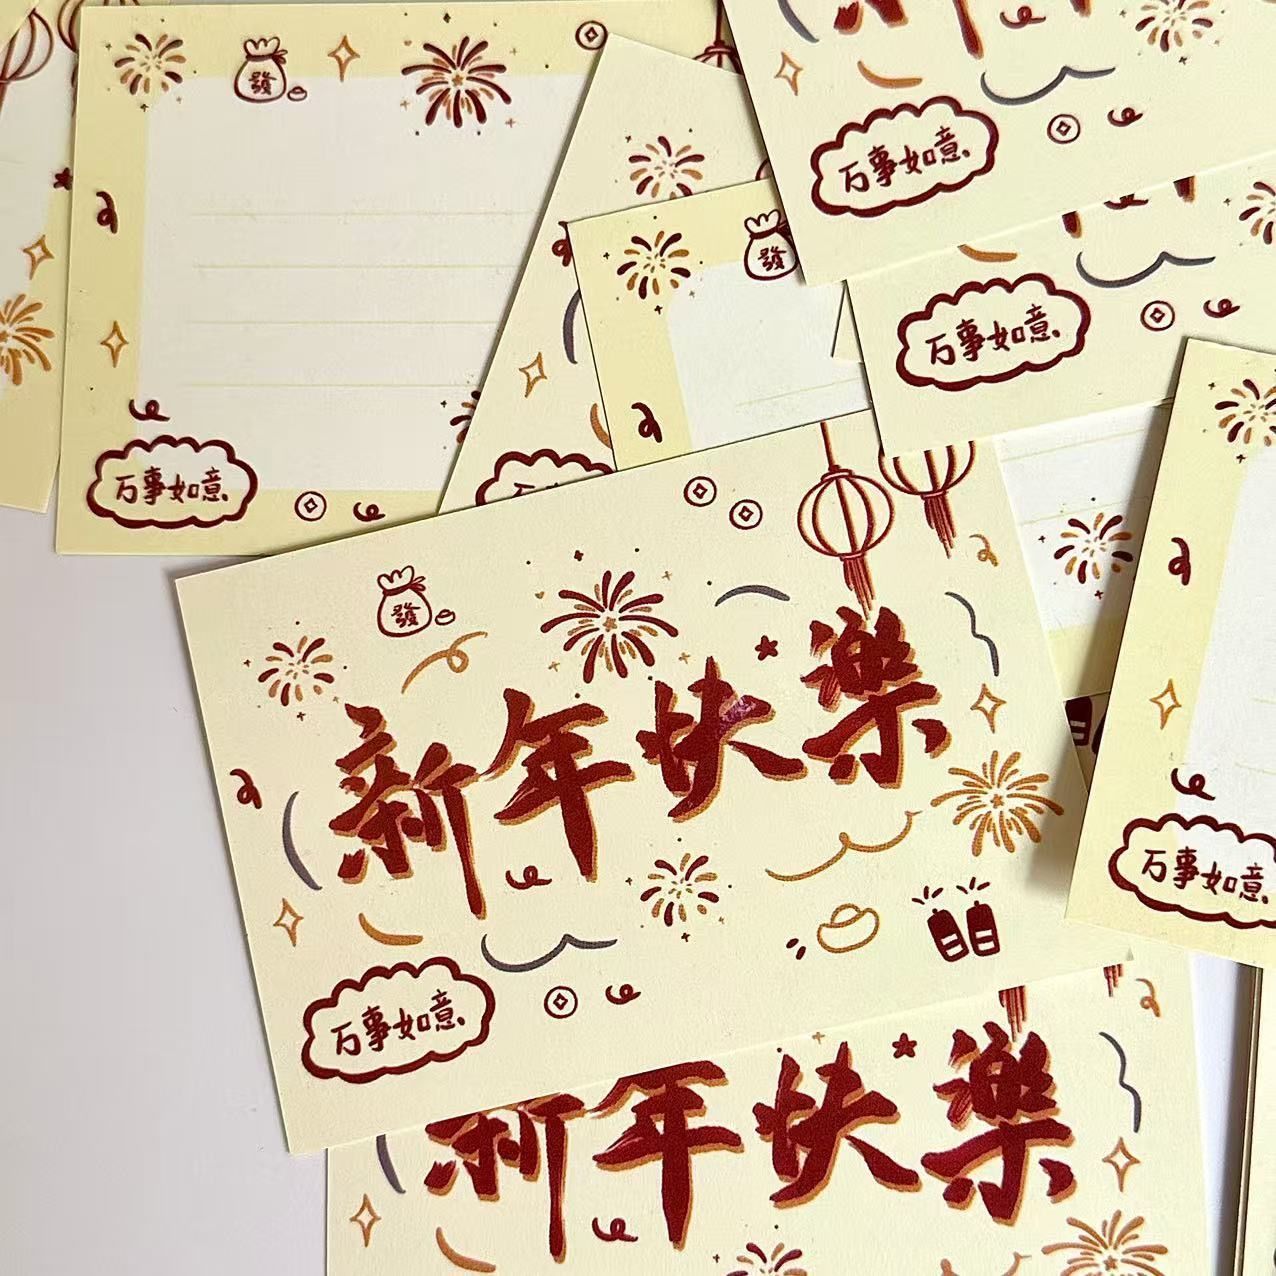 發
万事如意
發
万事如意
万事如意
發
新年快樂
万事如意
万事如意
新年快樂